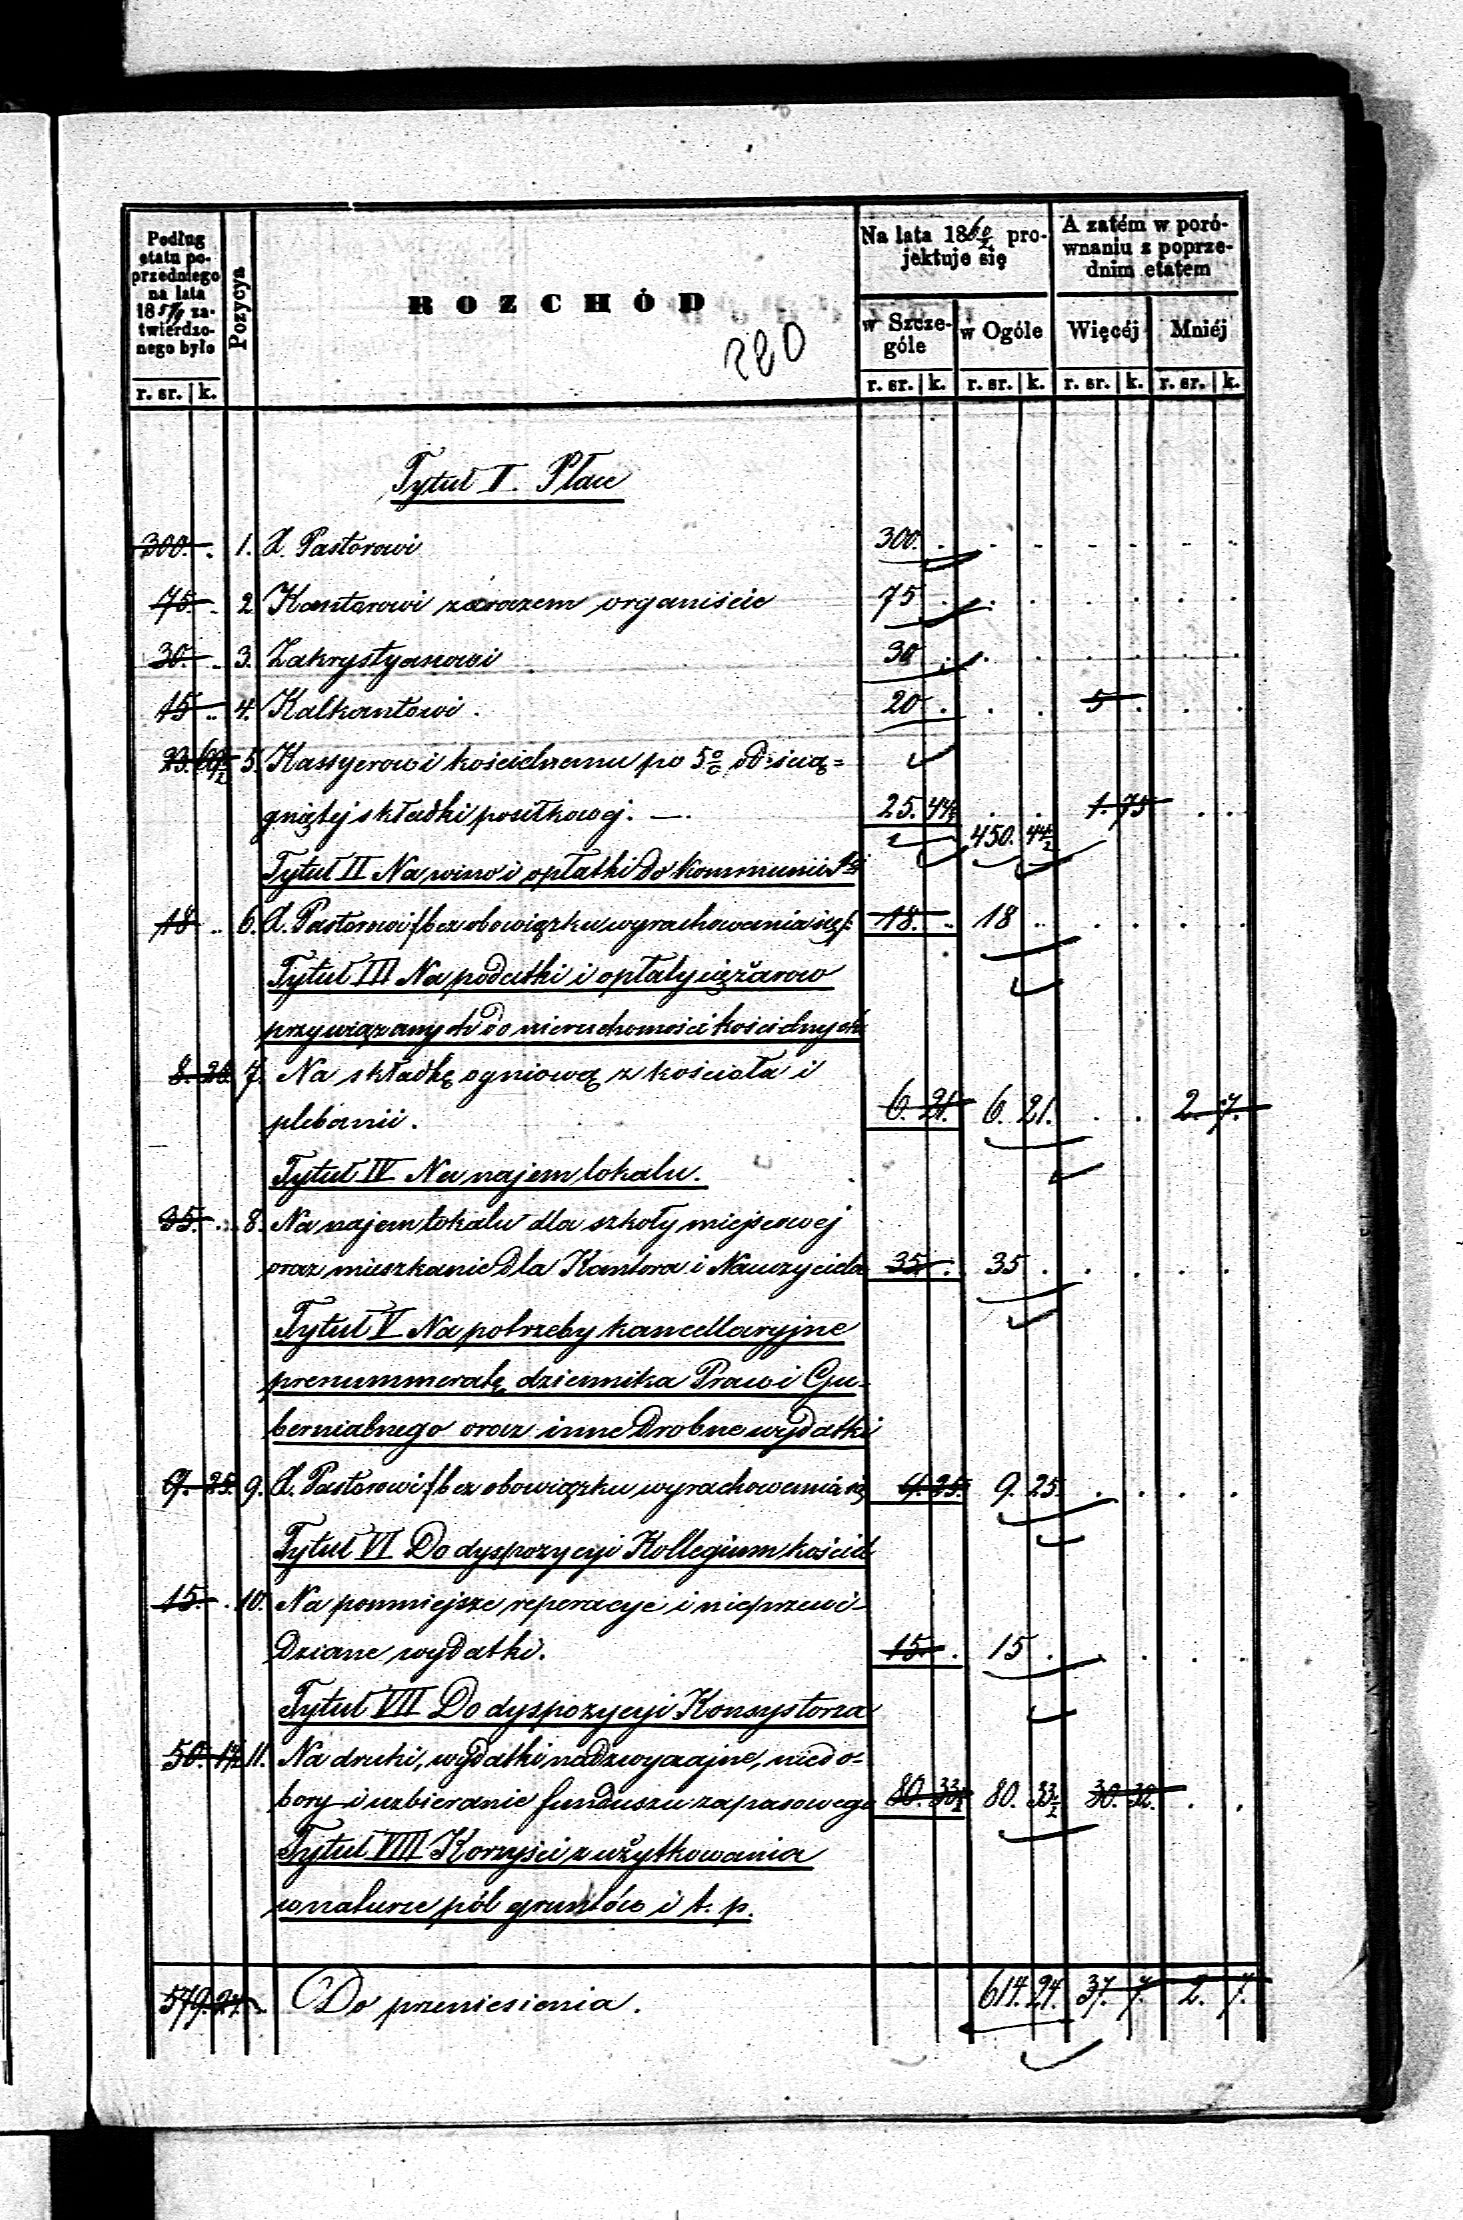 Podług etatu poprzedniego na lata 1857/9 zatwierdzonego było
Pozycya
ROZCHÓD
220
Na lata 1860/2 projektuje się
A zatém w porównaniu z poprzednim etatem
w Szczególe
w Ogóle
Więcéj
Mniéj
r. sr. k. r. sr. k. r. sr. k. r. sr. k. r. sr. k.
Tytuł I. Płace
300. . 1. X. Pastorowi 300. .
75. . 2. Kantorowi zarazem organiście 75 .
30. . 3. Zakrystyanowi 30 .
15 . 4. Kalkantowi. 20 . 5 .
23. 69½ 5. Kassyerowi kościelnemu po 5% od ścią=
gniętej składki posiłkowej. —. 25. 44½ 450. 44½ 1. 75.
Tytuł II Na wino i opłatki do kommunii Stéj
18 . 6. X. Pastorowi /bez obowiązku wyrachowania się/. 18. . 18 .
Tytuł III Na podatki i opłaty ciężarow
przywiązanych do nieruchomości kościelnych
8. 28. 7. Na składkę ogniową z kościoła i
plebanii. 6. 21. 6. 21. 2. 7.
Tytuł IV Na najem lokalu.
35. . 8. Na najem lokalu dla szkoły miejscowej
oraz mieszkanie dla Kantora i Nauczyciela 35. . 35 .
Tytuł V Na potrzeby kancellaryjne
prenummeratę dziennika Praw i Gu-
bernialnego oraz inne drobne wydatki
9. 25. 9. X. Pastorowi /bez obowiązku wyrachowania się 9. 25. 9. 25.
Tytuł VI Do dyspozycyi Kollegium kościel
15. . 10. Na pomniejsze reperacye i nieprzewi-
dziane wydatki. 15. . 15 .
Tytuł VII Do dyspozycyi Konsystorza
50. 11. Na druki, wydatki nadzwyczajne, niedo-
bory i uzbieranie funduszu zapasowego 80. 33½ 80. 33½ 30. 32.
Tytuł VIII Korzyści z użytkowania
w naturze pól gruntów i t. p.
579. 24. Do przeniesienia. 614. 24. 37. 7. 2. 7.